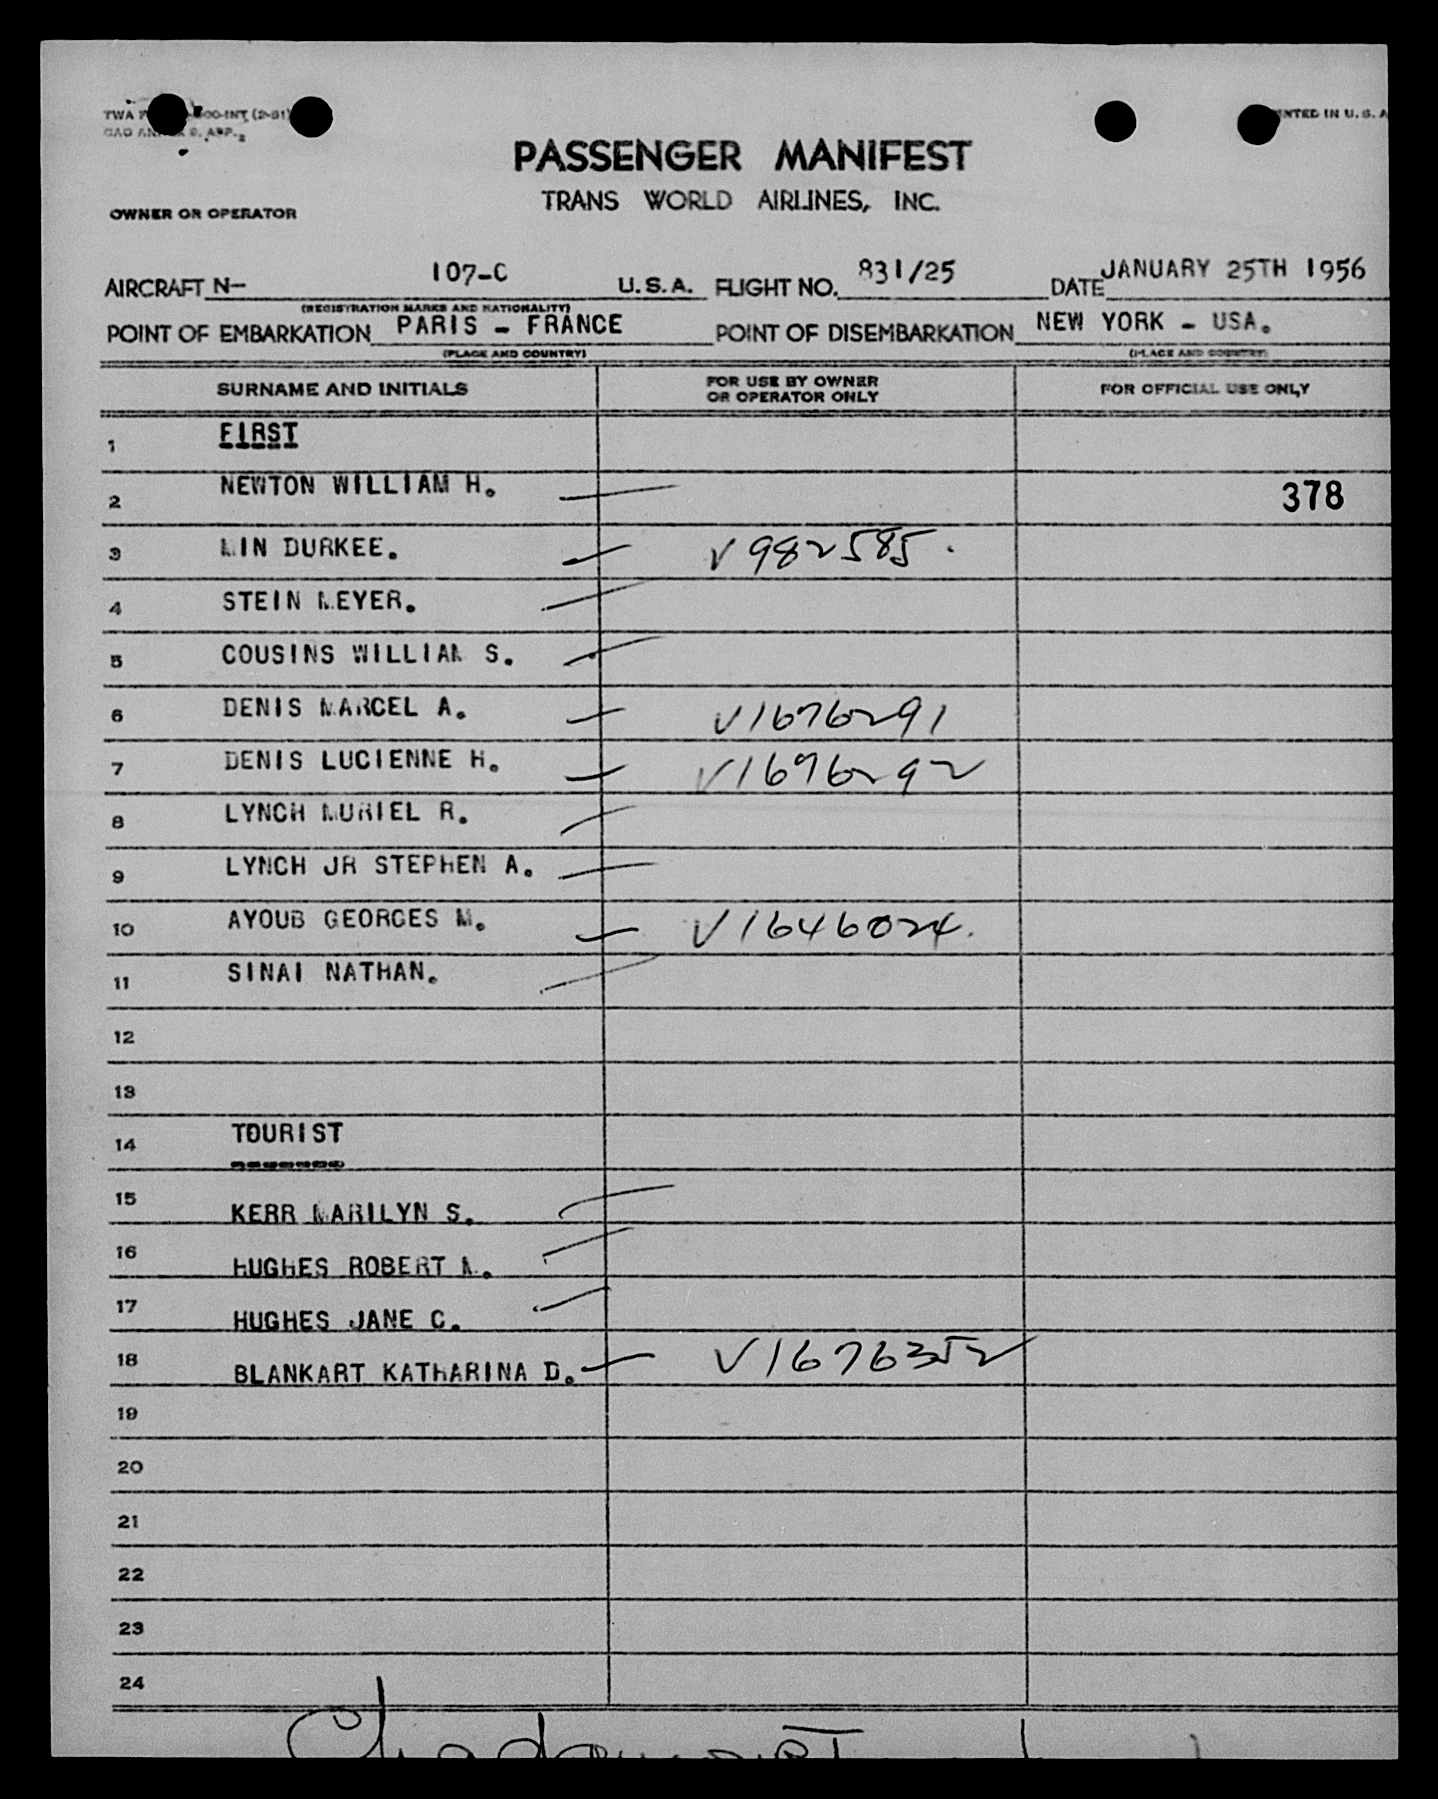 TWA
CAO
PRINTED IN U. S. A
PASSENGER MANIFEST
TRANS WORLD AIRLINES, INC.
OWNER OR OPERATOR
AIRCRAFT N- 107-C U.S.A. FLIGHT NO. 831/25 DATE JANUARY 25TH 1956
(REGISTRATION MARKS AND NATIONALITY)
POINT OF EMBARKATION PARIS - FRANCE POINT OF DISEMBARKATION NEW YORK - USA.
(PLACE AND COUNTRY) (PLACE AND COUNTRY)
SURNAME AND INITIALS FOR USE BY OWNER OR OPERATOR ONLY FOR OFFICIAL USE ONLY
1 FIRST
2 NEWTON WILLIAM H. 378
3 MIN DURKEE. V982585.
4 STEIN MEYER.
5 COUSINS WILLIAM S.
6 DENIS MARCEL A. V1676291
7 DENIS LUCIENNE H. V1676292
8 LYNCH MURIEL R.
9 LYNCH JR STEPHEN A.
10 AYOUB GEORGES M. V1646024.
11 SINAI NATHAN.
12
13
14 TOURIST
15 KERR MARILYN S.
16 HUGHES ROBERT M.
17 HUGHES JANE C.
18 BLANKART KATHARINA D. V1676352
19
20
21
22
23
24